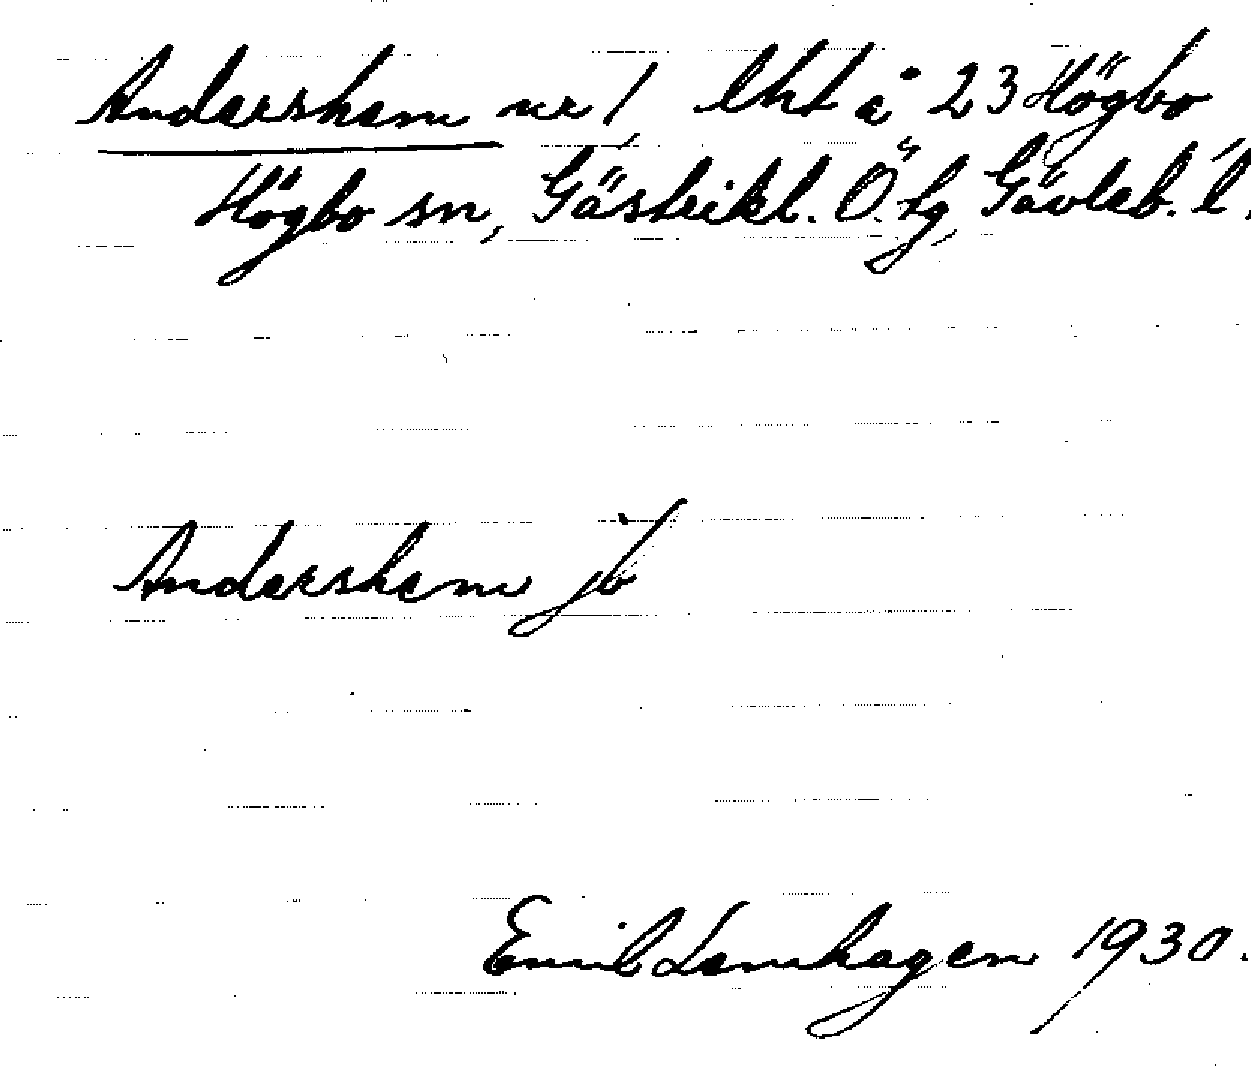 Andershem nr 1, lht å 23 Högbo
Högbo sn, Gästrikl. Ö. tg, Gävleb. l.
Andershem jb
Emil Lenhagen 1930.